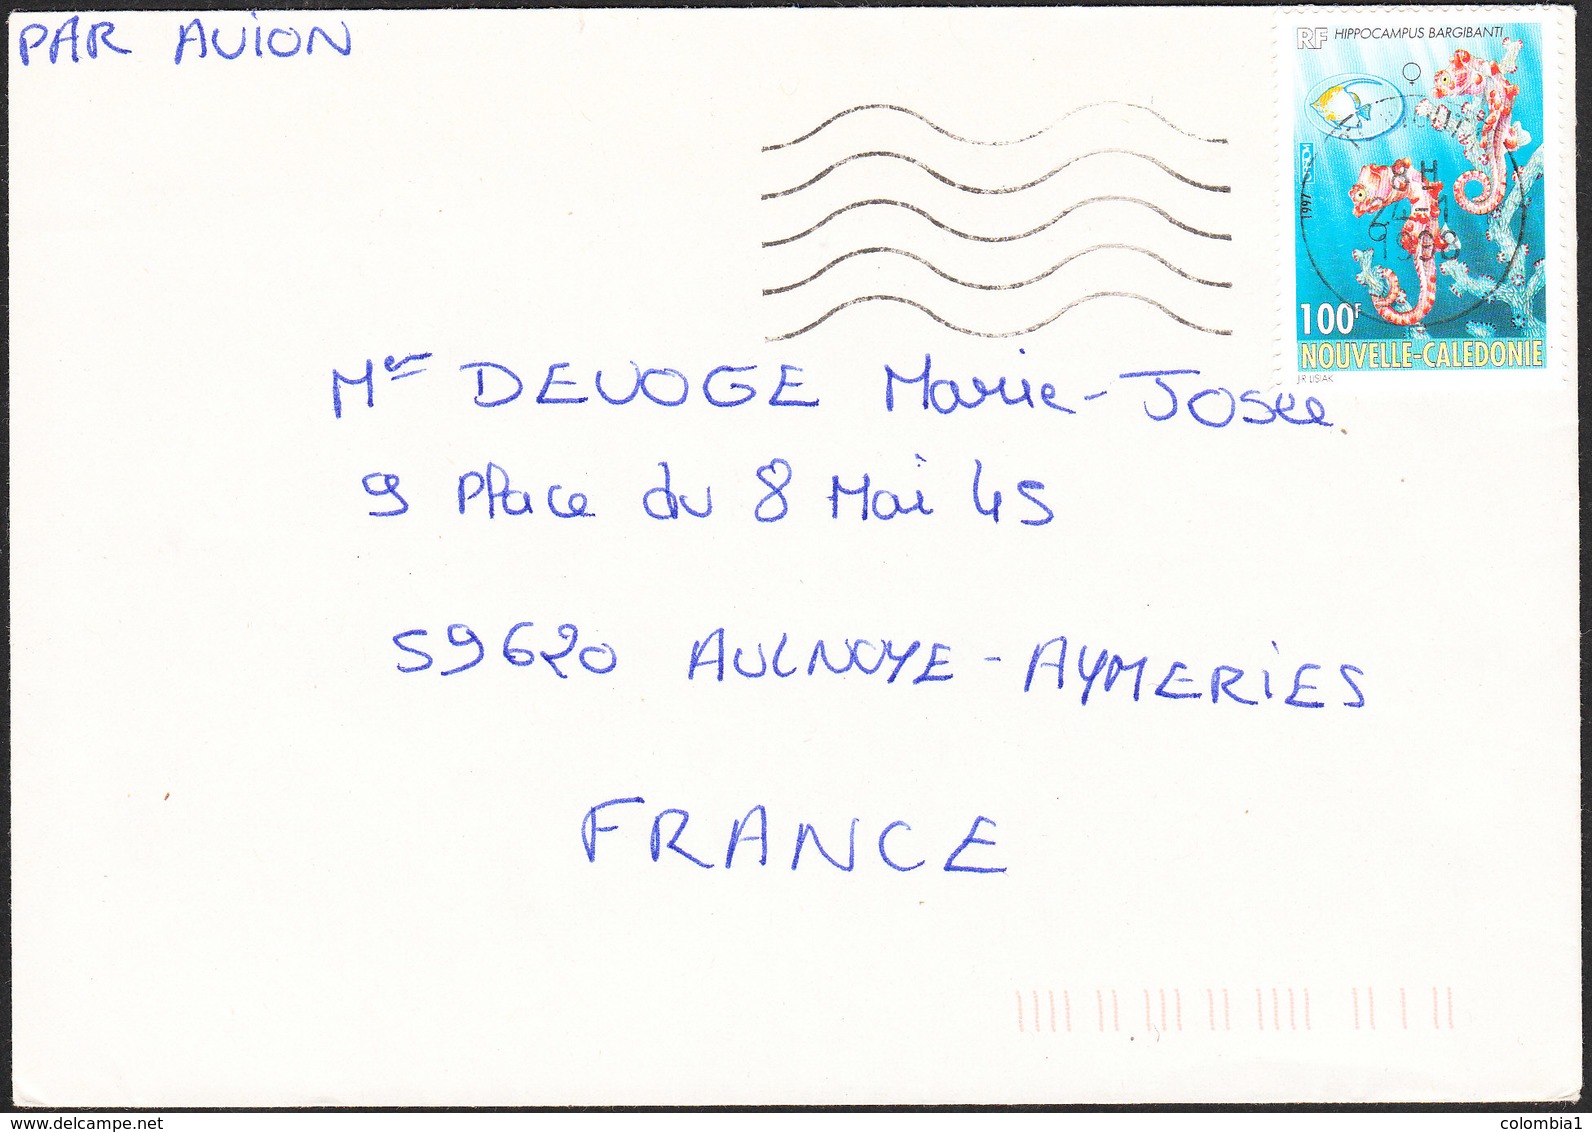 PAR AVION
RF HIPPOCAMPUS BARGIBANTI
♀
8H
24-1
1998
1997
100F
NOUVELLE-CALEDONIE
J R LISIAK
Mer DEVOGE Marie-Josée
9 Place du 8 Mai 45
59620 AULNOYE-AYMERIES
FRANCE
www.delcampe.net
colombia1